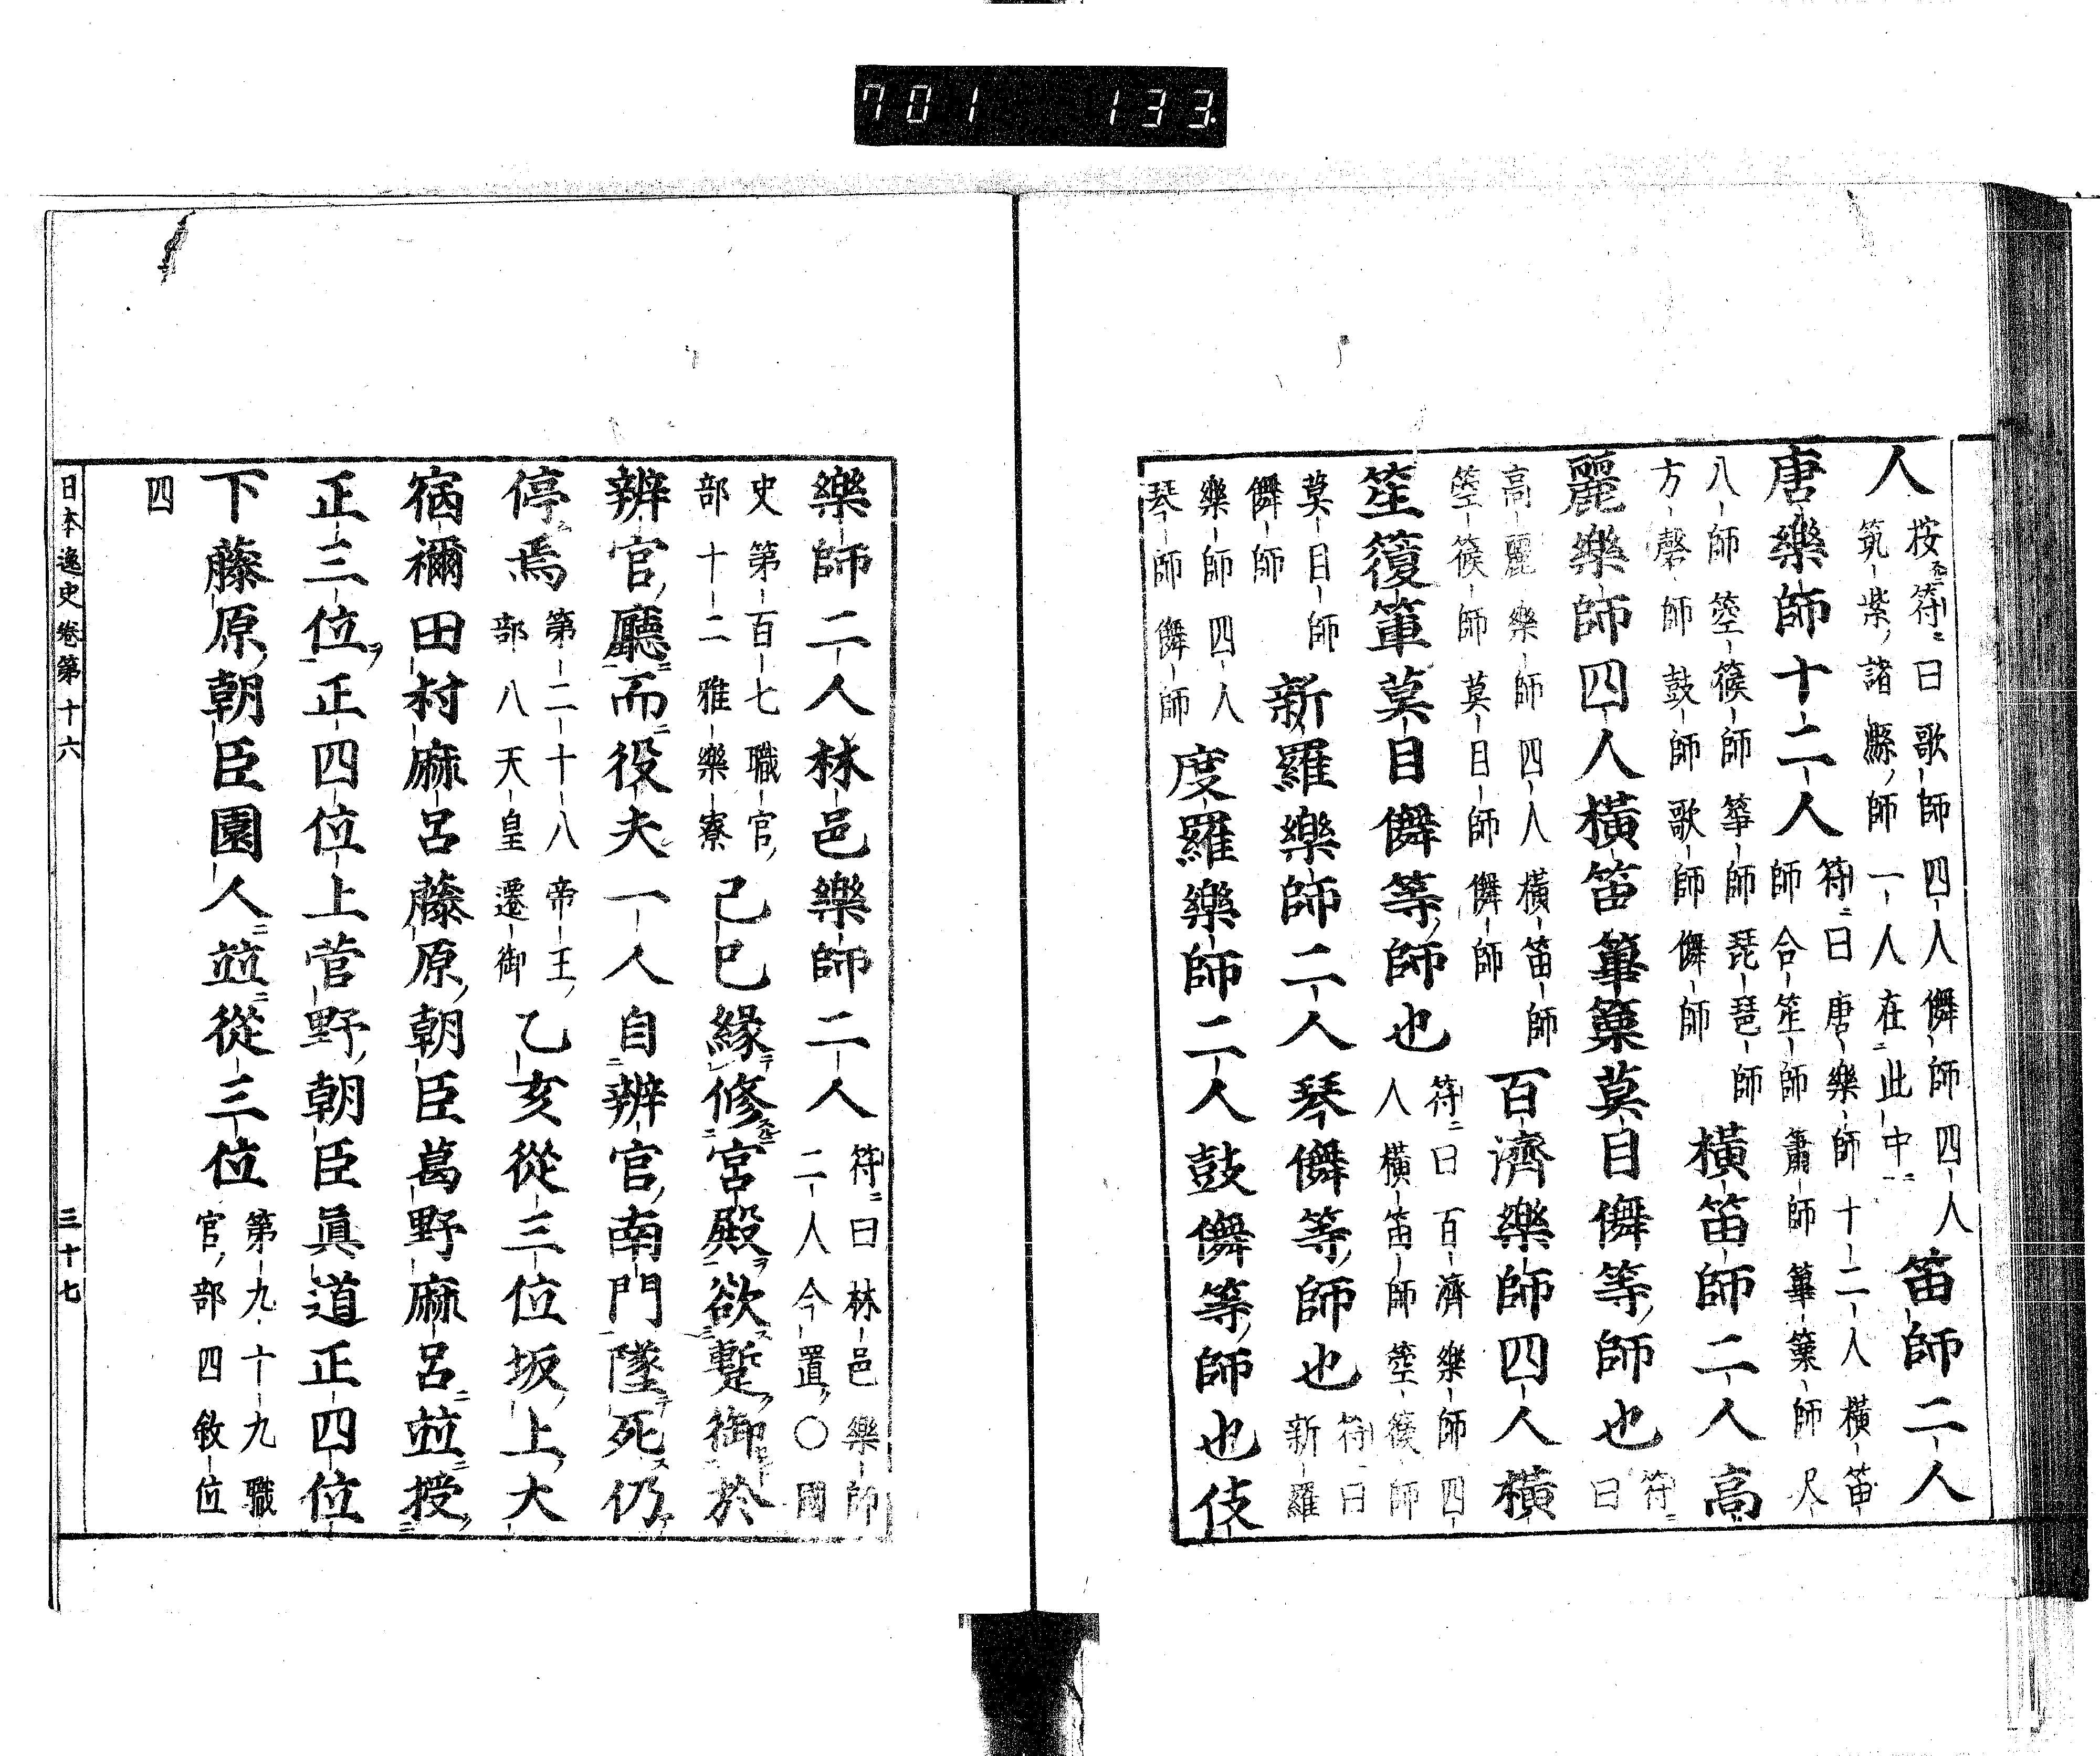 701 133
人 桉符曰歌師四人儛師四人
筑紫諸縣師一人在此中 笛師二人
唐樂師十二人 符曰唐樂師十二人橫笛
師合笙師簫師篳篥師尺
八師箜篌師箏師琵琶師
方磬師鼓師歌師儛師 橫笛師二人高
麗樂師四人橫笛篳篥莫目儛等師也 符
曰
高麗樂師四人橫笛師
箜篌師莫目師儛師 百濟樂師四人橫
笙篌莫目儛等師也 符曰百濟樂師四
人橫笛師箜篌師
莫目師
儛師 新羅樂師二人琴儛等師也 符曰
新羅
樂師四人
琴師儛師 度羅樂師二人鼓儛等師也伎
樂師二人林邑樂師二人 符曰林邑樂師
二人今置○國
史第百七職官
部十二雅樂寮 己巳緣修宮殿欲蹔御於
辨官廳而役夫一人自辨官南門墜死仍
停焉 第二十八帝王
部八天皇遷御 乙亥從三位坂上大
宿禰田村麻呂藤原朝臣葛野麻呂竝授
正三位正四位上菅野朝臣眞道正四位
下藤原朝臣園人竝從三位 第九十九職
官部四敘位
四
日本逸史卷第十六 三十七